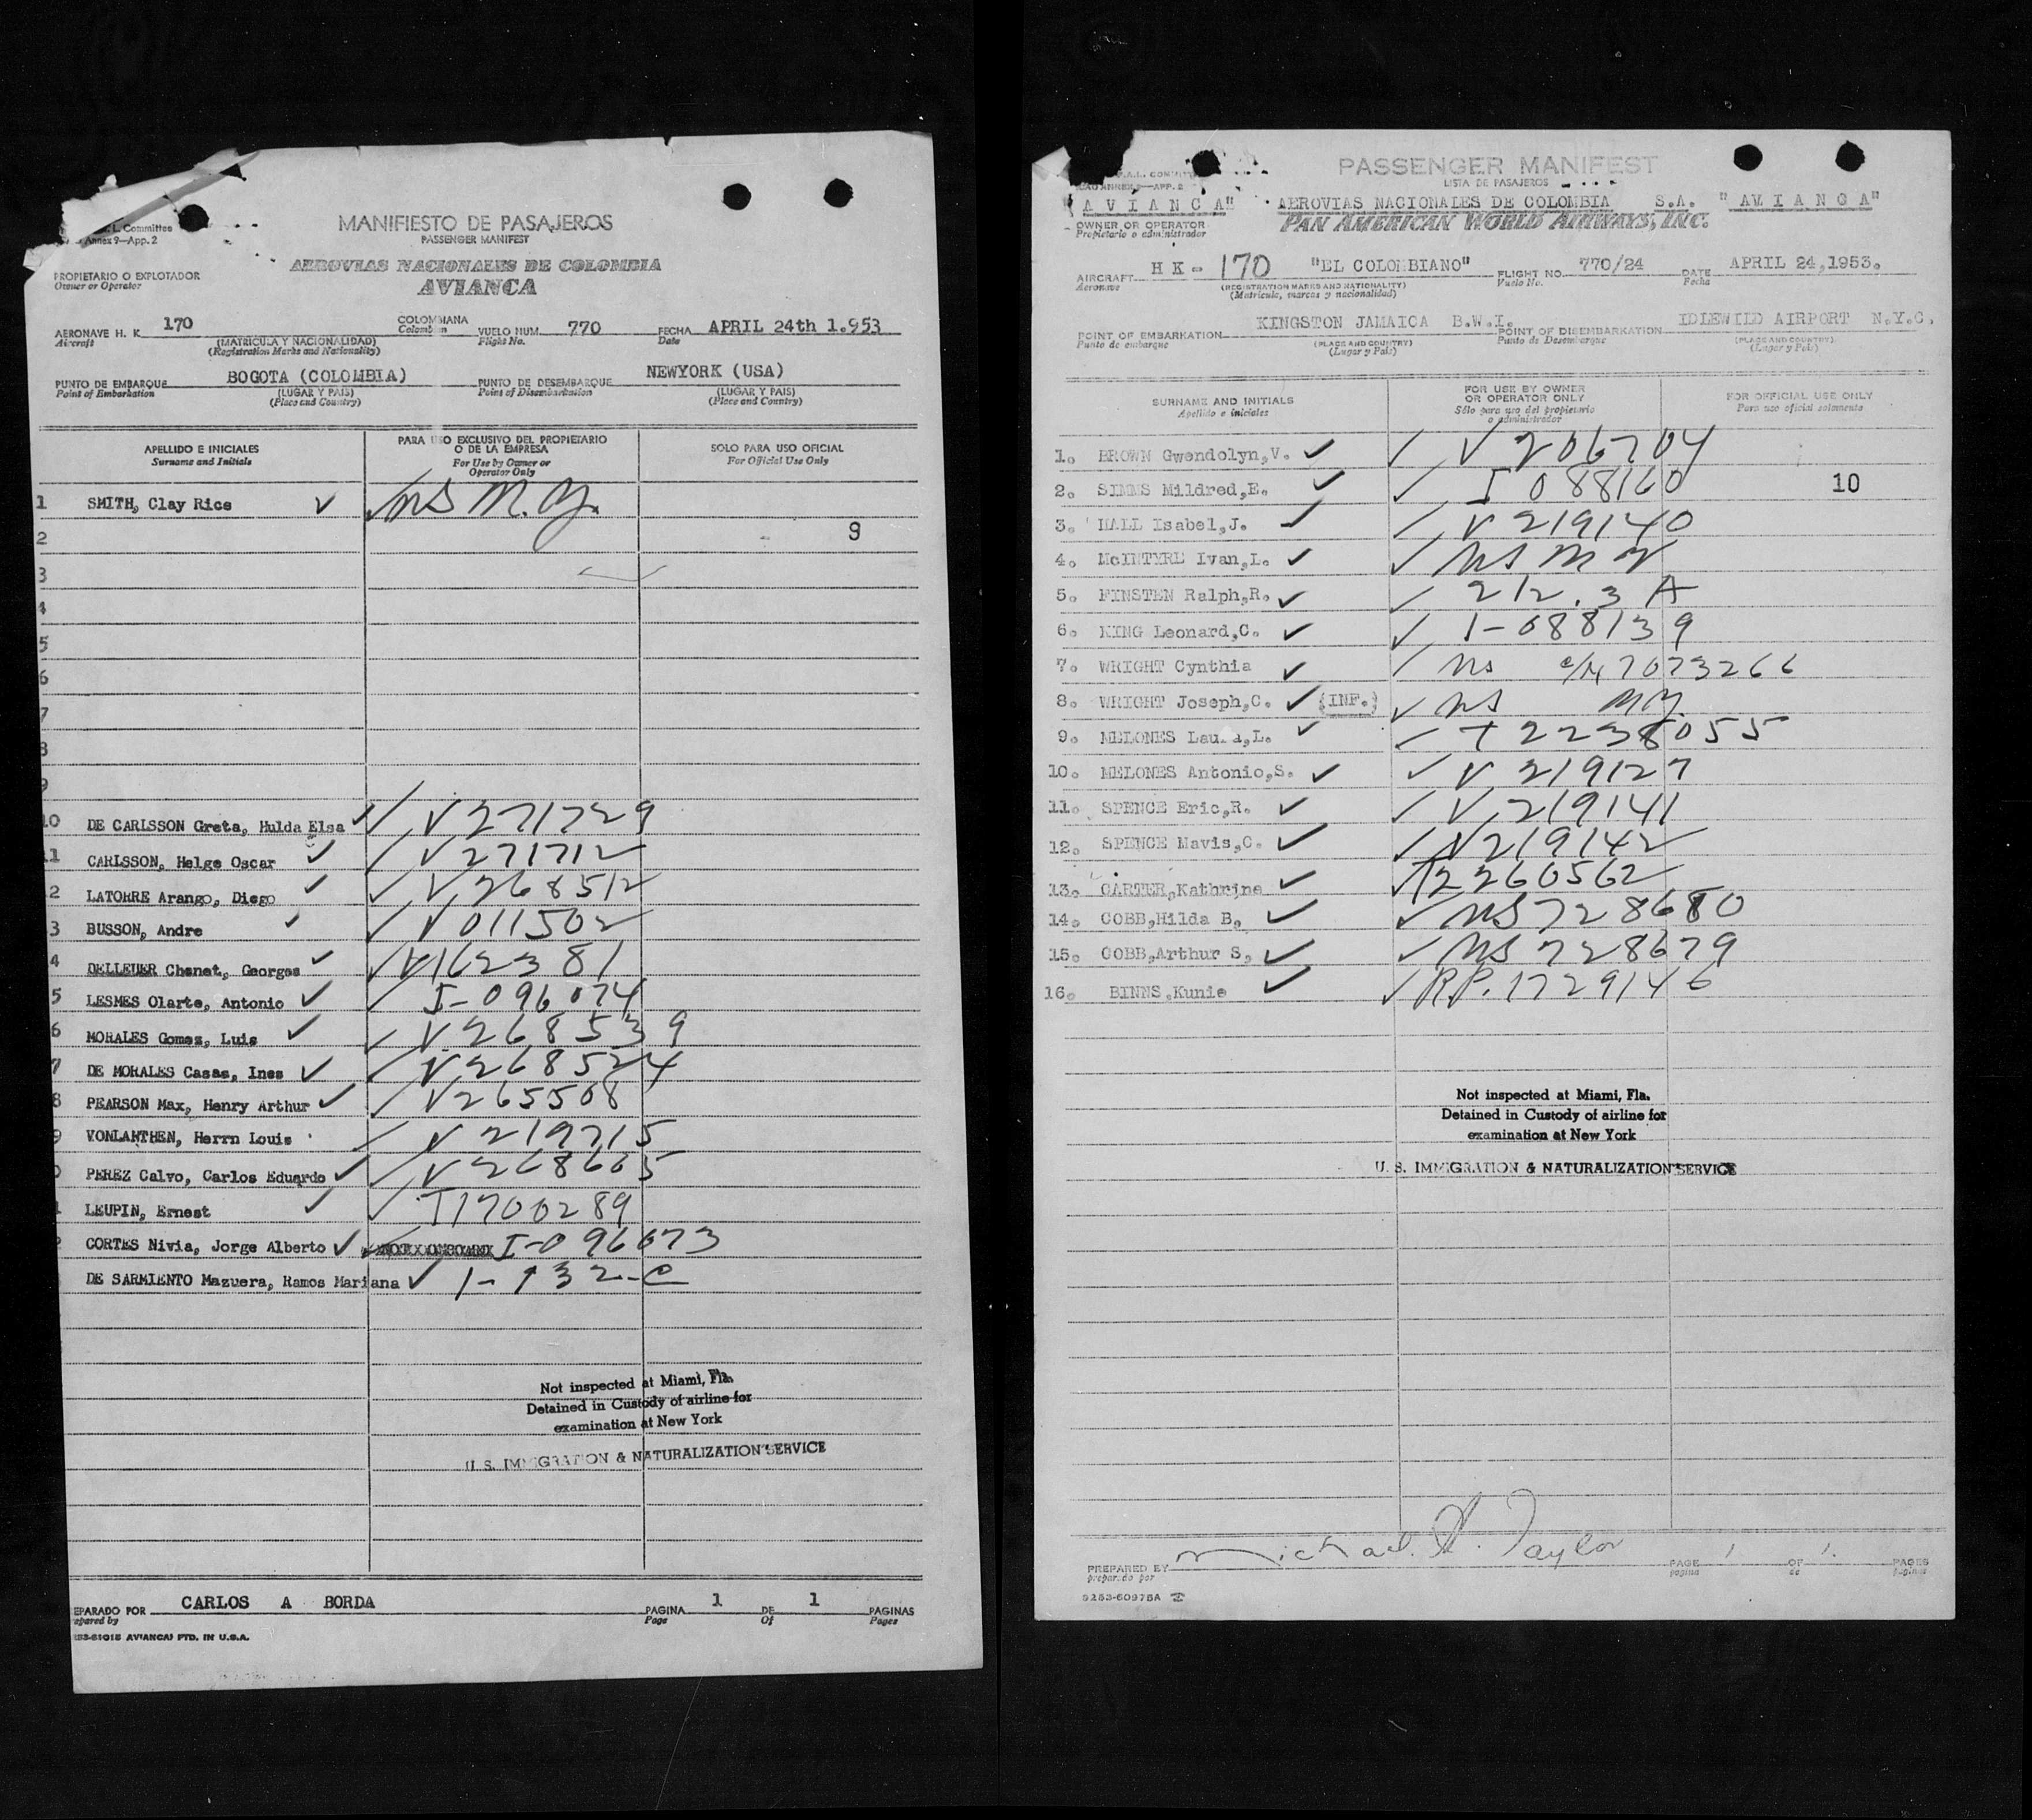 L. Committee
Annex 9—App. 2
MANIFIESTO DE PASAJEROS
PASSENGER MANIFEST
PROPIETARIO O EXPLOTADOR
Owner or Operator
AEROVIAS NACIONALES DE COLOMBIA
AVIANCA
AERONAVE H. K. 170 COLOMBIANA VUELO NUM. 770 FECHA APRIL 24th 1.953
Aircraft (MATRICULA Y NACIONALIDAD) Colombian Flight No. Date
(Registration Marks and Nationality)
PUNTO DE EMBARQUE BOGOTA (COLOMBIA) PUNTO DE DESEMBARQUE NEWYORK (USA)
Point of Embarkation (LUGAR Y PAIS) Point of Disembarkation (LUGAR Y PAIS)
(Place and Country) (Place and Country)
APELLIDO E INICIALES PARA USO EXCLUSIVO DEL PROPIETARIO O DE LA EMPRESA SOLO PARA USO OFICIAL
Surname and Initials For Use by Owner or Operator Only For Official Use Only
1 SMITH, Clay Rice ✓ ✓ NS M.Y.
2 9
3
4
5
6
7
8
9
10 DE CARLSSON Greta, Hulda Elsa ✓ ✓ V 271729
11 CARLSSON, Helge Oscar ✓ ✓ V 271712
2 LATORRE Arango, Diego ✓ ✓ V 268512
3 BUSSON, Andre ✓ ✓ V 011502
4 DELLEUER Chenet, Georges ✓ ✓ V1623 81
5 LESMES Olarte, Antonio ✓ ✓ I-096074
6 MORALES Gomez, Luis ✓ ✓ V 268539
7 DE MORALES Casas, Ines ✓ ✓ V 268524
8 PEARSON Max, Henry Arthur ✓ ✓ V265508
9 VONLANTHEN, Herrn Louis ✓ V 219715
0 PEREZ Calvo, Carlos Eduardo ✓ ✓ V 268605
1 LEUPIN, Ernest ✓ ✓ T1700289
2 CORTES Nivia, Jorge Alberto ✓ ✓ I-096073
DE SARMIENTO Mazuera, Ramos Mariana ✓ 1-132-C
Not inspected at Miami, Fla.
Detained in Custody of airline for
examination at New York
U. S. IMMIGRATION & NATURALIZATION SERVICE
EPARADO POR CARLOS A BORDA PAGINA 1 DE 1 PAGINAS
epared by Page Of Pages
253-61015 AVIANCA) PTD. IN U.S.A.
PASSENGER MANIFEST
LISTA DE PASAJEROS
ANNEX 9—APP. 2
"AVIANCA" AEROVIAS NACIONALES DE COLOMBIA S.A. "AVIANCA"
OWNER OR OPERATOR PAN AMERICAN WORLD AIRWAYS, INC.
Propietario o administrador
AIRCRAFT HK- 170 "EL COLOMBIANO" FLIGHT NO. 770/24 DATE APRIL 24,1953.
Aeronave (REGISTRATION MARKS AND NATIONALITY) Vuelo No. Fecha
(Matricula, marcas y nacionalidad)
POINT OF EMBARKATION KINGSTON JAMAICA B.W.I. POINT OF DISEMBARKATION IDLEWILD AIRPORT N.Y.C.
Punto de embarque (PLACE AND COUNTRY) Punto de Desembarque (PLACE AND COUNTRY)
(Lugar y Pais) (Lugar y Pais)
SURNAME AND INITIALS FOR USE BY OWNER OR OPERATOR ONLY FOR OFFICIAL USE ONLY
Apellido e iniciales Sólo para uso del propietario o administrador Para uso oficial solamente
1. BROWN Gwendolyn,V. ✓ ✓ V 206704
2. SIMMS Mildred,E. ✓ ✓ I 088160 10
3. HALL Isabel,J. ✓ ✓ V 219140
4. McINTYRE Ivan,L. ✓ ✓ NS M Y
5. FINSTEN Ralph,R. ✓ ✓ 212.3 A
6. KING Leonard,C. ✓ ✓ 1-088139
7. WRIGHT Cynthia ✓ ✓ NS c/n 7073266
8. WRIGHT Joseph,C. ✓ (INF.) ✓ NS MY.
9. MELONES Laura,L. ✓ ✓ T 2238055
10. MELONES Antonio,S. ✓ ✓ V 219127
11. SPENCE Eric,R. ✓ ✓ V 219141
12. SPENCE Mavis,C. ✓ ✓ V219142
13. CARTER,Kathrine ✓ T2260562
14. COBB,Hilda B. ✓ ✓ NS 728680
15. COBB,Arthur S, ✓ ✓ NS 728679
16. BINNS,Kunie ✓ ✓ RP. 1729146
Not inspected at Miami, Fla.
Detained in Custody of airline for
examination at New York
U. S. IMMIGRATION & NATURALIZATION SERVICE
PREPARED BY Michael A. Taylor PAGE 1 OF 1. PAGES
preparado por pagina de paginas
5253-60975A